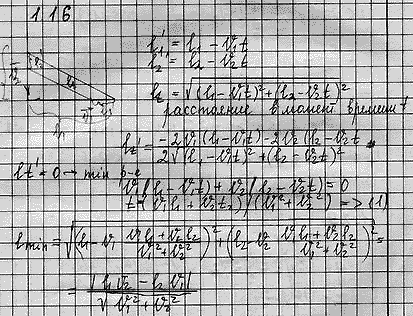 1.16
l₁' = l₁ - v₁t
l₂' = l₂ - v₂t
l_t = √((l₁-v₁t)² + (l₂-v₂t)²)
расстояние в момент времени t
l_t' = (-2v₁(l₁-v₁t) - 2v₂(l₂-v₂t)) / (2√((l₁-v₁t)² + (l₂-v₂t)²))
l_t' = 0 → min р-е
v₁(l₁-v₁t) + v₂(l₂-v₂t) = 0
t = (v₁l₁ + v₂l₂)/(v₁² + v₂²) => (1)
l min = √((l₁ - v₁ (v₁l₁+v₂l₂)/(v₁²+v₂²))² + (l₂ - v₂ (v₁l₁+v₂l₂)/(v₁²+v₂²))²) =
= |l₁v₂ - l₂v₁| / √(v₁² + v₂²)